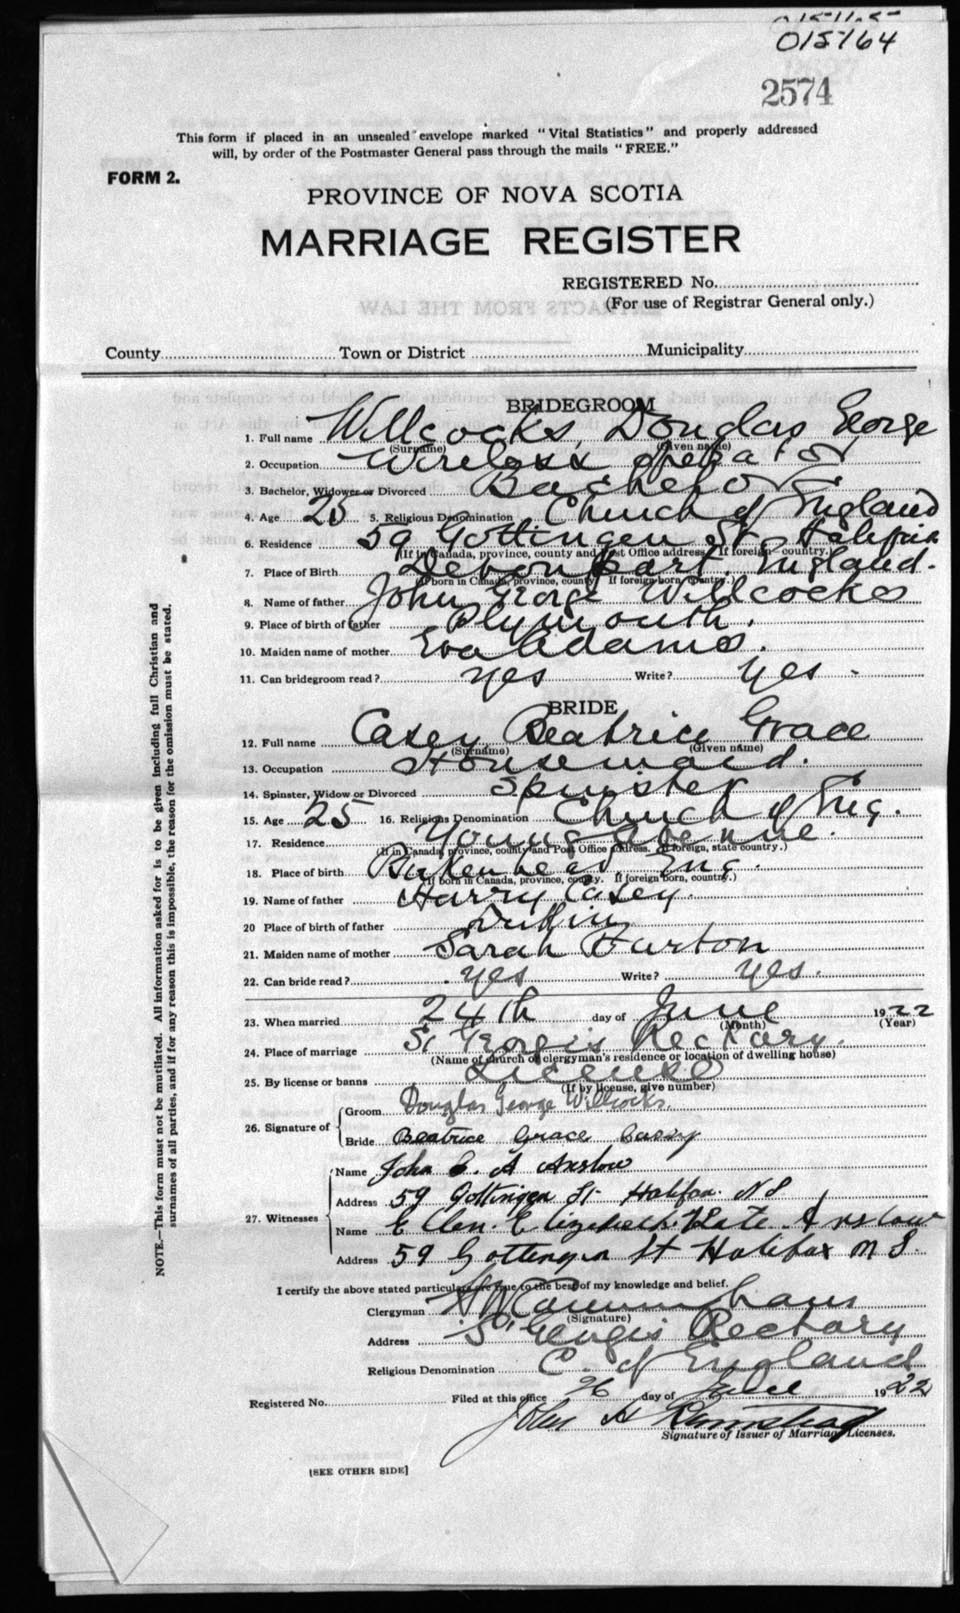 015164
2574
This form if placed in an unsealed envelope marked "Vital Statistics" and properly addressed
will, by order of the Postmaster General pass through the mails "FREE."
FORM 2.
PROVINCE OF NOVA SCOTIA
MARRIAGE REGISTER
REGISTERED No.
(For use of Registrar General only.)
County Town or District Municipality
BRIDEGROOM
1. Full name Willcocks, Douglas George
(Surname) (Given name)
2. Occupation Wireless operator
3. Bachelor, Widower or Divorced Bachelor
4. Age 25 5. Religious Denomination Church of England
6. Residence 59 Gottingen St Halifax
(If in Canada, province, county and Post Office address. If foreign country.)
7. Place of Birth Devonport. England.
(If born in Canada, province, county. If foreign born, country.)
8. Name of father John George Willcocks
9. Place of birth of father Plymouth.
10. Maiden name of mother Eva Adams.
11. Can bridegroom read? yes Write? yes.
BRIDE
12. Full name Casey Beatrice Grace
(Surname) (Given name)
13. Occupation Housemaid.
14. Spinster, Widow or Divorced Spinster
15. Age 25 16. Religious Denomination Church of Eng.
17. Residence Young Avenue.
(If in Canada, province, county and Post Office address. If foreign, state country.)
18. Place of birth Birkenhead, Eng.
(If born in Canada, province, county. If foreign born, country.)
19. Name of father Harry Casey.
20 Place of birth of father
21. Maiden name of mother Sarah Burton
22. Can bride read? yes Write? yes.
23. When married 24th day of June 1922
(Month) (Year)
24. Place of marriage St Georges Rectory.
(Name of church or clergyman's residence or location of dwelling house)
25. By license or banns License
(If by license, give number)
26. Signature of Groom Douglas George Willcocks.
Bride Beatrice Grace Casey
27. Witnesses Name John E. A Anslow
Address 59 Gottingen St. Halifax. NS
Name Ellen. Elizabeth. Kate. Anslow
Address 59 Gottengen St Halifax N S.
I certify the above stated particulars are true to the best of my knowledge and belief.
Clergyman Cunningham
(Signature)
Address St Georges Rectory
Religious Denomination C. of England
Registered No. Filed at this office 26 day of June 1922
John H
Signature of Issuer of Marriage Licenses.
[SEE OTHER SIDE]
NOTE.—This form must not be mutilated. All information asked for is to be given including full Christian and
surnames of all parties, and if for any reason this is impossible, the reason for the omission must be stated.